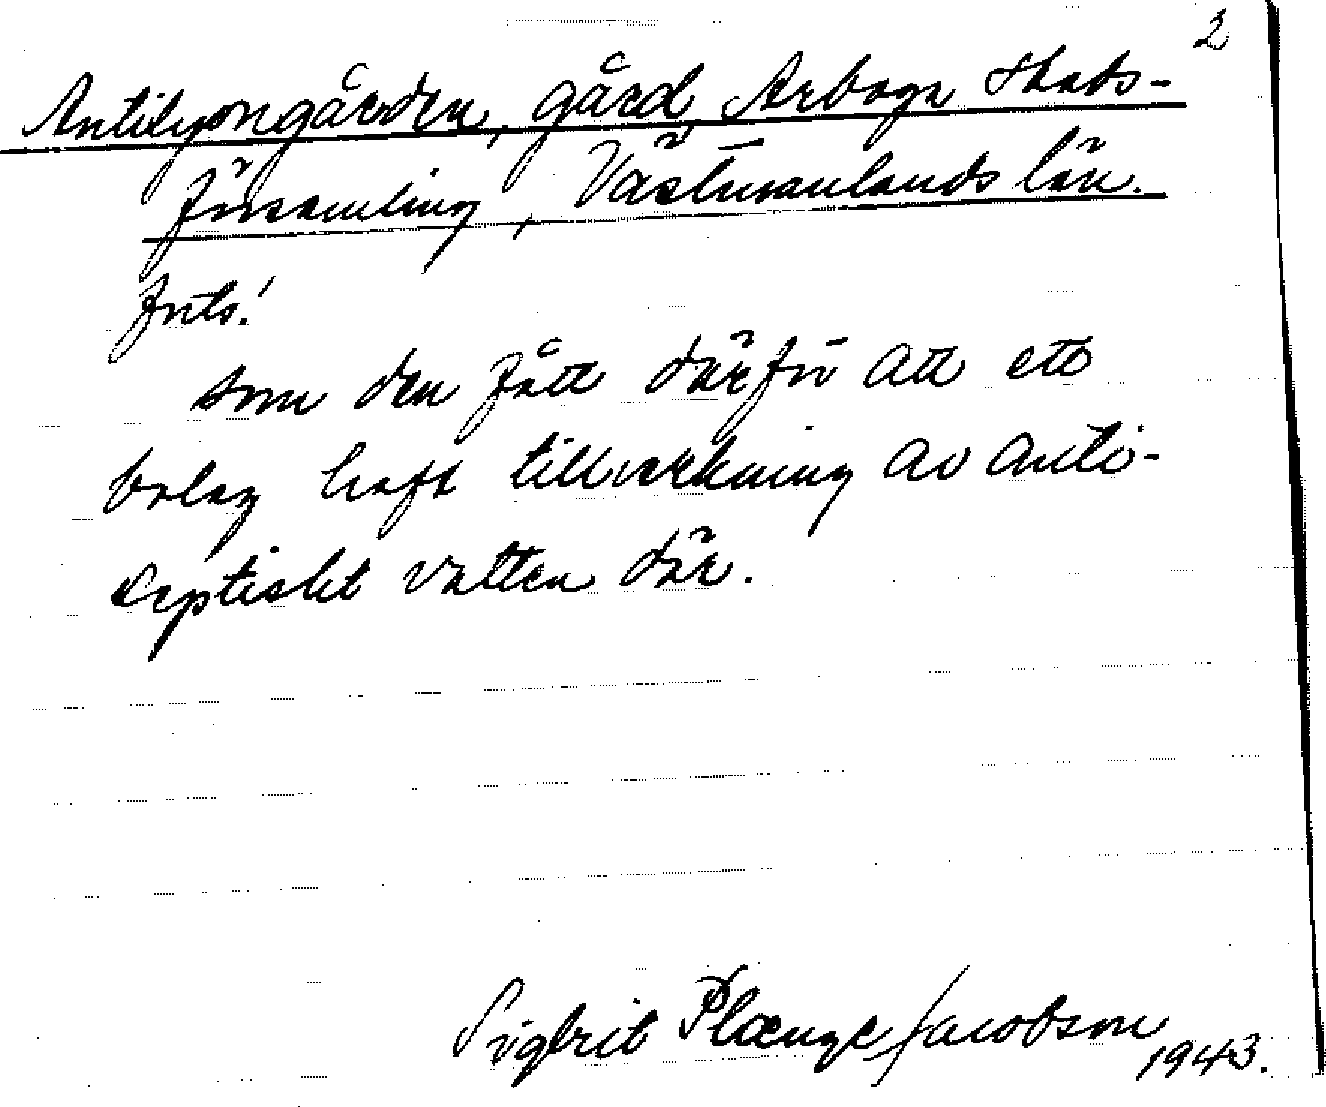 2
Antilyongården, gård, Arboga stads-
församling, Västmanlands län.
Forts.!
som den fått därför att ett
bolag haft tillverkning av anti-
septiskt vatten där.
Sigbrit Plænge Jacobson
1943.